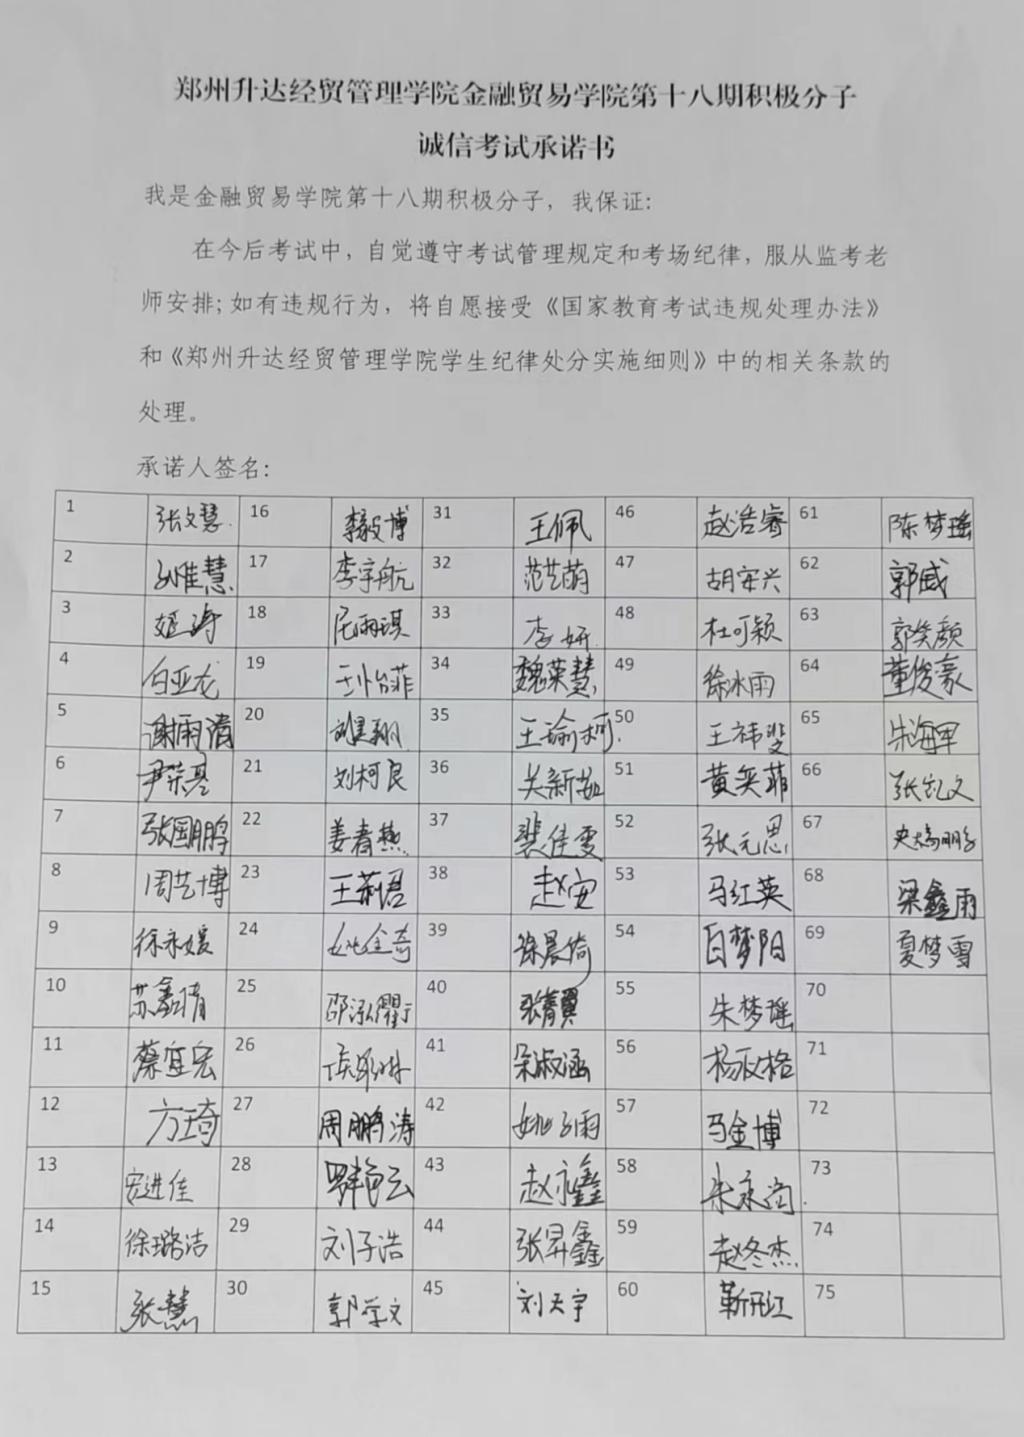 郑州升达经贸管理学院金融贸易学院第十八期积极分子
诚信考试承诺书
我是金融贸易学院第十八期积极分子，我保证:
在今后考试中，自觉遵守考试管理规定和考场纪律，服从监考老
师安排;如有违规行为，将自愿接受《国家教育考试违规处理办法》
和《郑州升达经贸管理学院学生纪律处分实施细则》中的相关条款的
处理。
承诺人签名:
1 张文慧 16 博 31 王佩 46 赵浩睿 61 陈梦瑶
2 孙惟慧 17 李宇航 32 范艺萌 47 胡安兴 62 郭威
3 姬涛 18 屈雨琪 33 李妍 48 杜可颖 63 郭笑颜
4 白亚龙 19 王怡菲 34 魏荣慧 49 徐冰雨 64 董俊豪
5 谢雨清 20 35 王瑜柯 50 王祎斐 65 朱海军
6 尹荣亮 21 刘柯良 36 关新茹 51 黄奕菲 66 张文
7 张国鹏 22 姜春燕 37 裴佳雯 52 张元思 67 鹏
8 周艺博 23 王莉君 38 赵安 53 马红英 68 梁鑫雨
9 徐永媛 24 姚金奇 39 徐晨倚 54 白梦阳 69 夏梦雪
10 苏鑫倩 25 邵泓 40 张翼 55 朱梦瑶 70
11 蔡宜宏 26 41 淑涵 56 杨政格 71
12 方琦 27 周鹏涛 42 姚子雨 57 马金博 72
13 进佳 28 云 43 赵永鑫 58 永 73
14 徐璐洁 29 刘子浩 44 张昇鑫 59 赵冬杰 74
15 张慧 30 郭学文 45 刘天宇 60 靳江 75